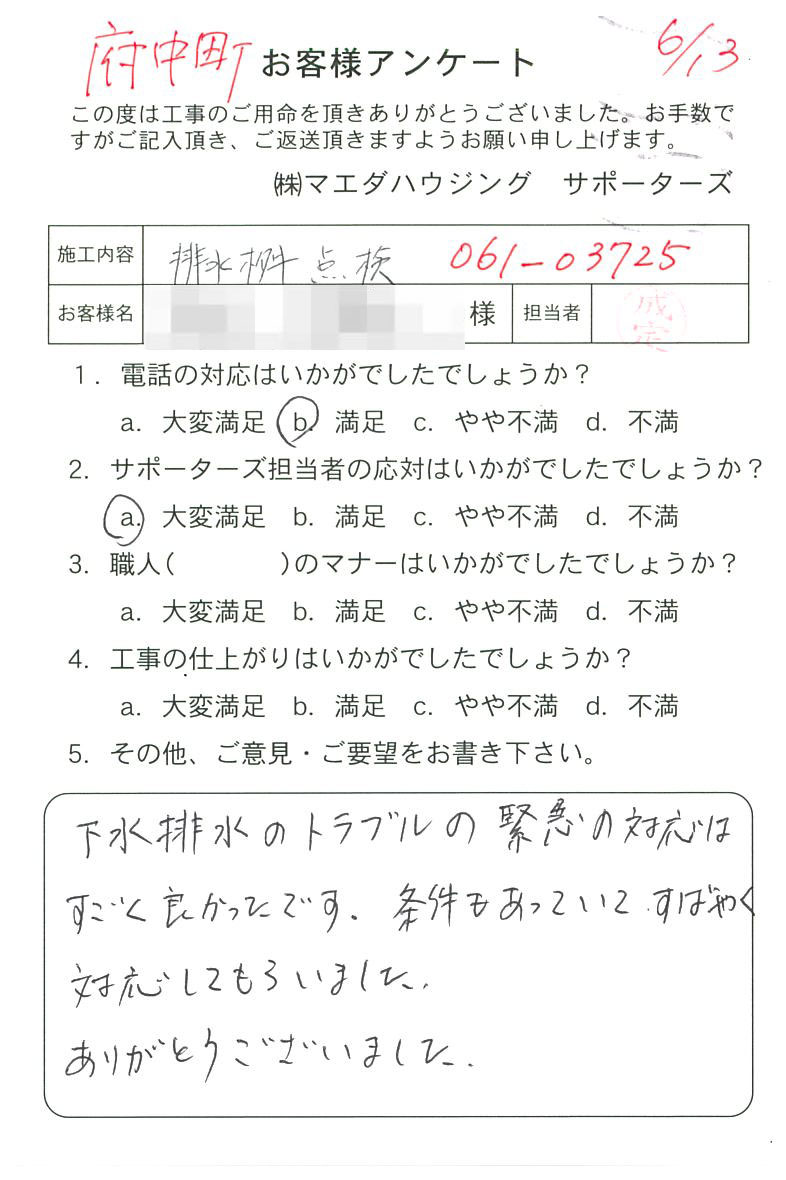 府中町 お客様アンケート 6/13
この度は工事のご用命を頂きありがとうございました。お手数で
すがご記入頂き、ご返送頂きますようお願い申し上げます。
㈱マエダハウジング　サポーターズ
施工内容 排水桝点検 061-03725
お客様名 様 担当者 成定
1. 電話の対応はいかがでしたでしょうか？
a. 大変満足 b. 満足 c. やや不満 d. 不満
2. サポーターズ担当者の応対はいかがでしたでしょうか？
a. 大変満足 b. 満足 c. やや不満 d. 不満
3. 職人(　　　　)のマナーはいかがでしたでしょうか？
a. 大変満足 b. 満足 c. やや不満 d. 不満
4. 工事の仕上がりはいかがでしたでしょうか？
a. 大変満足 b. 満足 c. やや不満 d. 不満
5. その他、ご意見・ご要望をお書き下さい。
下水排水のトラブルの緊急の対応は
すごく良かったです. 条件もあっていて すばやく
対応してもらいました.
ありがとうございました.